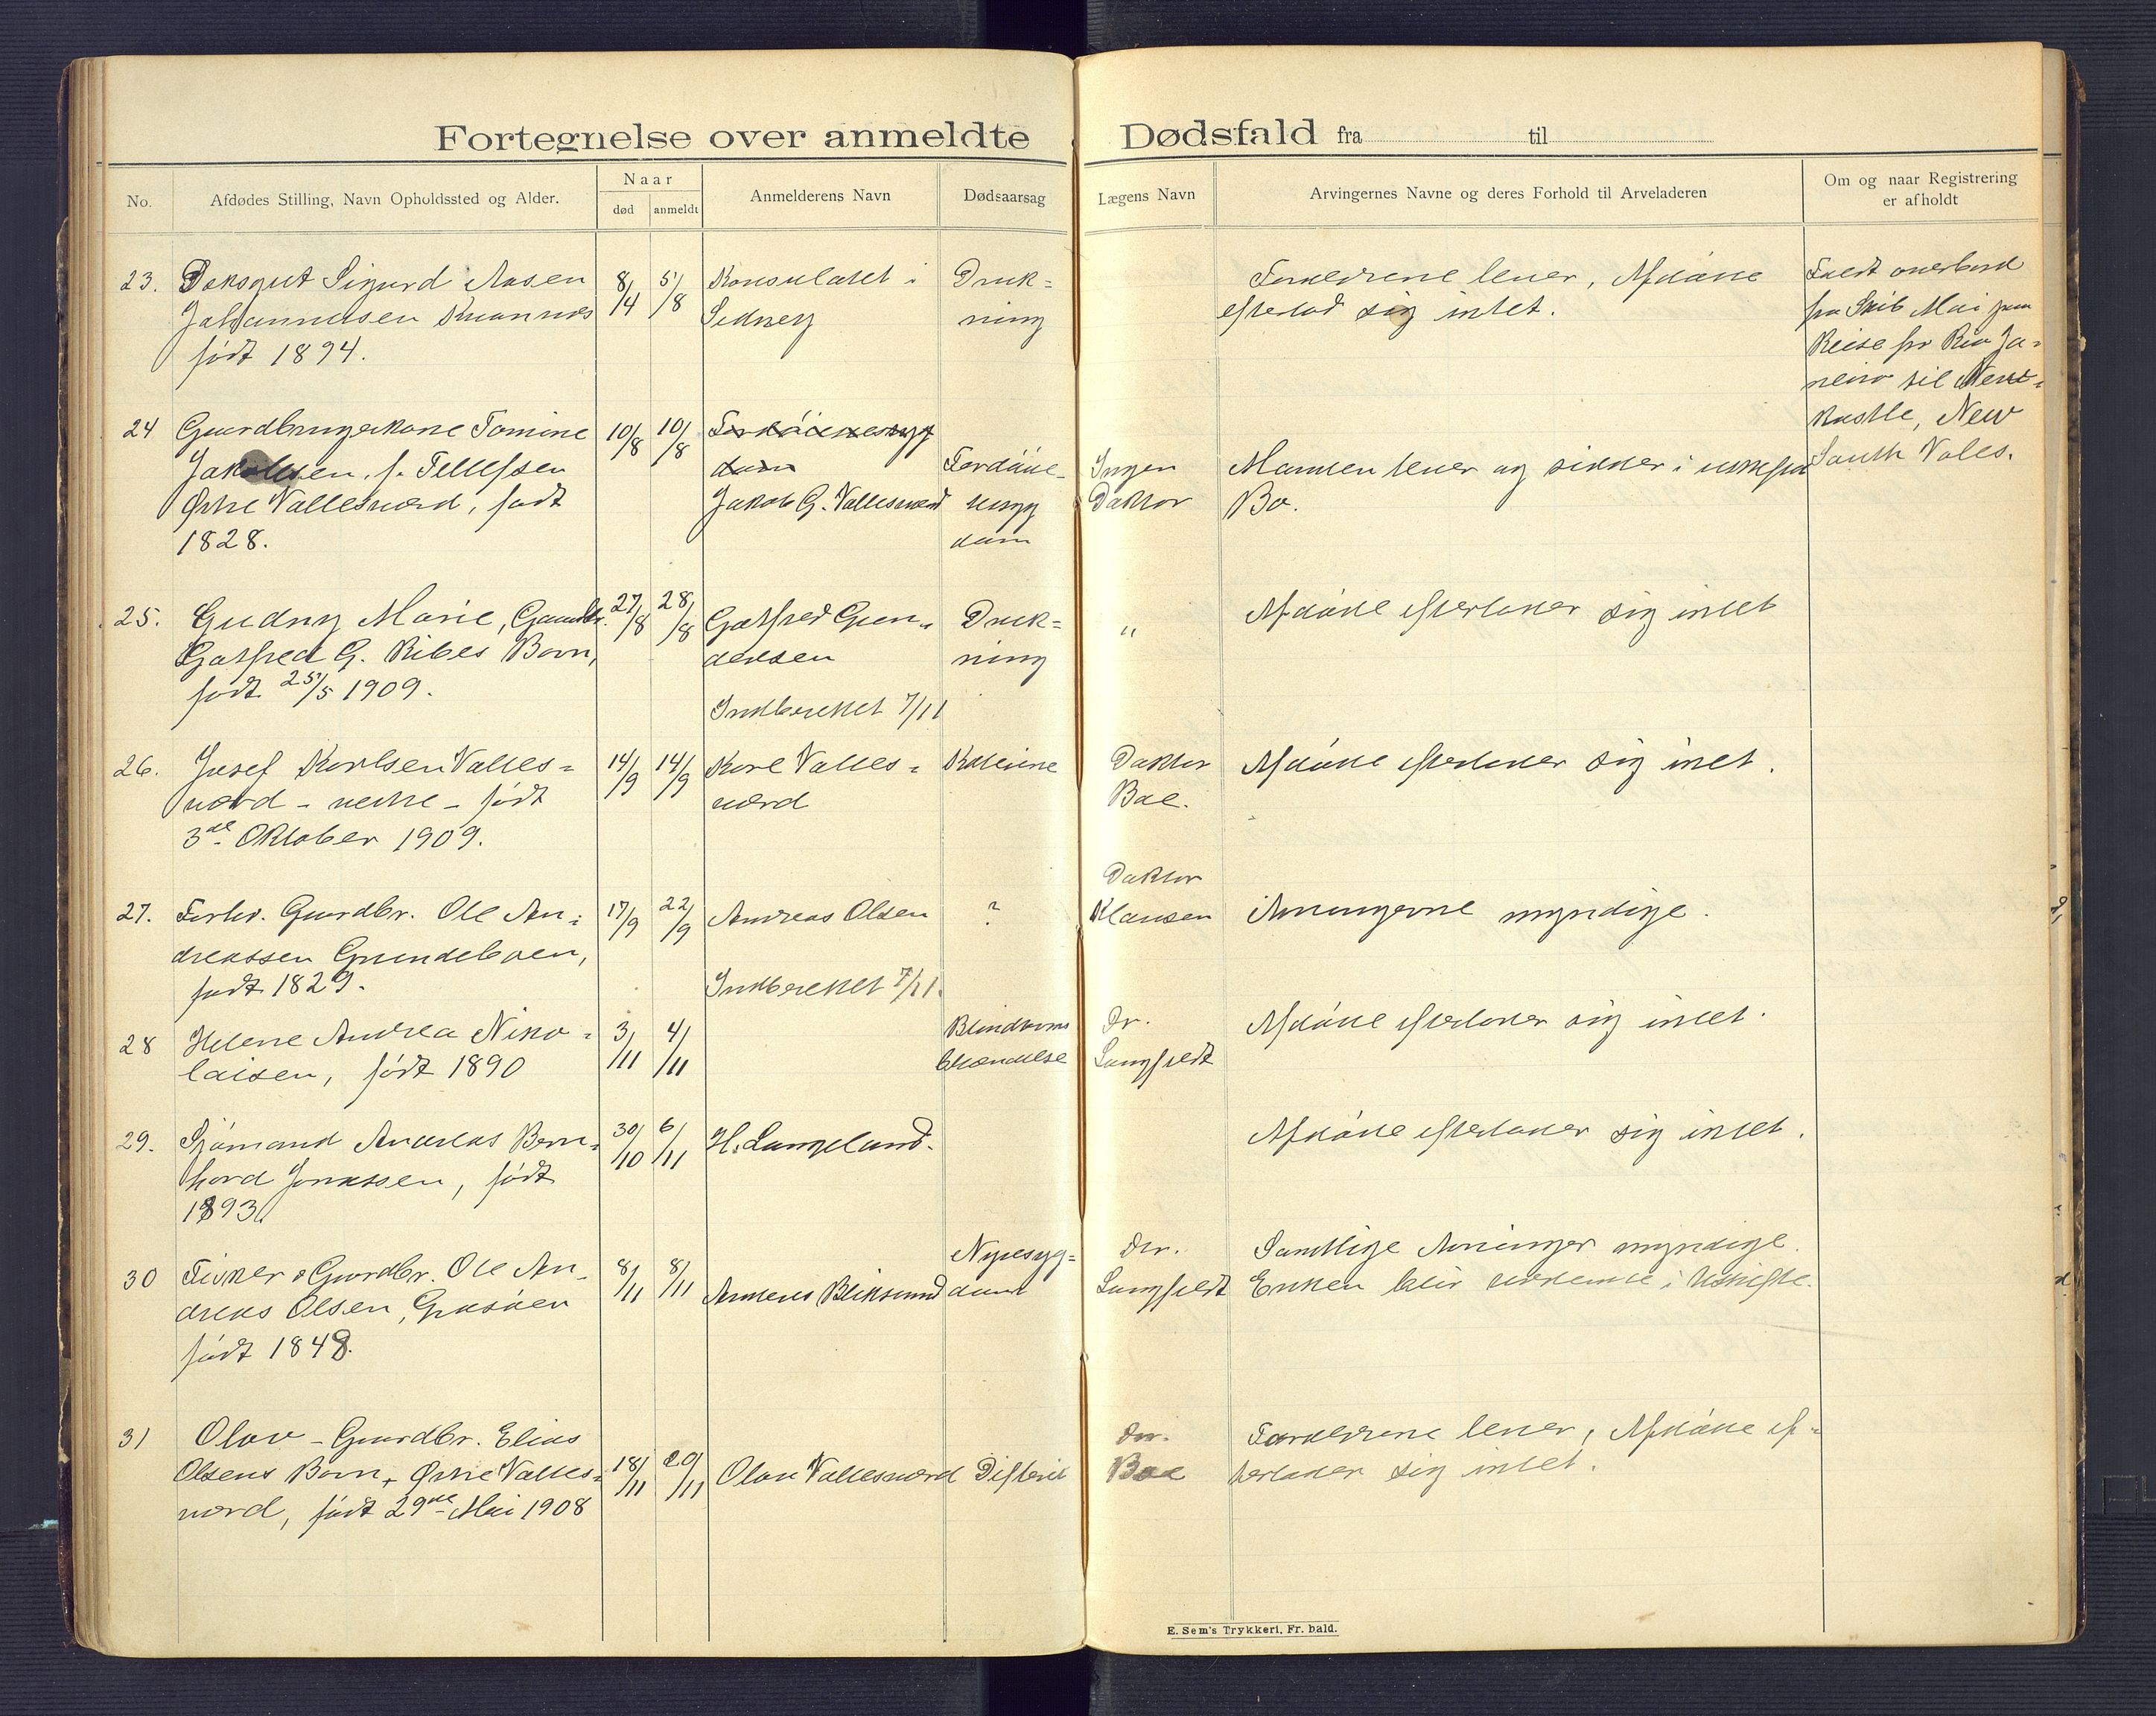 Fortegnelse over anmeldte Dødsfald fra til
No.
Afdødes Stilling, Navn Opholdssted og Alder.
Naar
død
anmeldt
Anmelderens Navn
Dødsaarsag
Lægens Navn
Arvingernes Navne og deres Forhold til Arveladeren
Om og naar Registrering
er afholdt
23. Daksgut Sigurd Aasen
Johannesen
født 1894.
8/4
5/8
Konsulatet i
Sidney
Druk-
ning
Forældrene lever, Afdøde
efterlod sig intet.
Faldt overbord
fra Skib Mai paa
Reise fra Rio Ja-
neiro til New-
kastle, New
South Vales.
24 Gaardbrugerkone Tomine
Jakobsen, f. Tellefsen
Østre Vallesværd, født
1828.
10/8
10/8
Fordøielsessyg
dom
Jakob G. Vallesværd
Fordøie-
lsessyg
dom
Ingen
Doktor
Manden lever og sidder i uskiftet
Bo.
25. Gudny Marie, Gaardbr.
Gotfred G. Ribes Barn,
født 25/5 1909.
27/8
28/8
Gotfred Gun-
dersen
Indberettet 7/11
Druk-
ning
"
Afdøde efterlader sig intet
26. Josef Karlsen Valles-
værd - vestre - født
3de Oktober 1909.
14/9
14/9
Kare Valles-
værd
Kolerine
Doktor
Boe.
Afdøde efterlader sig intet.
27. Forhv. Gaardbr. Ole An-
dreassen Grundeboen,
født 1829.
17/9
22/9
Andreas Olsen
Indberettet 7/11.
?
Doktor
Klausen
Arvingerne myndige.
28 Helene Andrea Niko-
laisen, født 1890
3/11
4/11
Blindtarms
betændelse
Dr.
Langfeldt
Afdøde efterlader sig intet.
29. Sjømand Andreas Bern-
hard Jonassen, født
1893
30/10
6/11
H. Langeland.
Afdøde efterlader sig intet.
30 Fisker & Gaardbr. Ole An-
dreas Olsen, Grasøen
født 1848.
8/11
8/11
Anders Bliksund
Nyresyg-
dom
Dr.
Langfeldt
Samtlige Arvinger myndige.
Enken blir siddende i Uskifte.
31 Olav - Gaardbr. Elias
Olsens Barn, Østre Valles-
værd, født 29de Mai 1908
18/11
20/11
Olav Vallesværd
Difteri
Dr.
Boe
Forældrene lever, Afdøde ef-
terlader sig intet.
E. Sem's Trykkeri, Fr. hald.